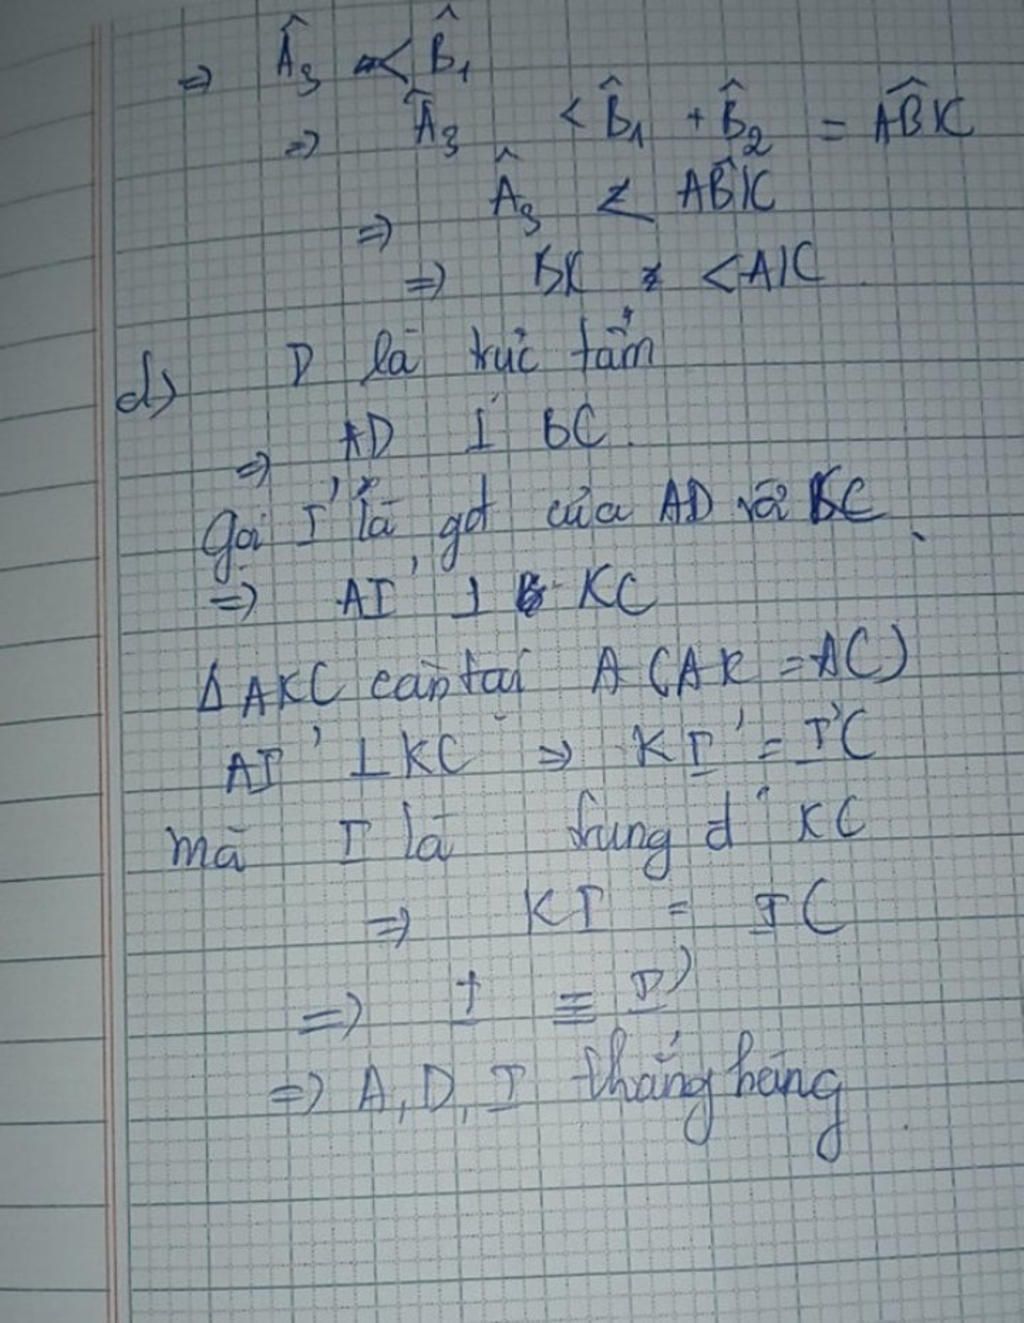 => Â₃ < B̂₁
=> Â₃ < B̂₁ + B̂₂ = ABK̂
=> Â₃ < ABK̂
=> BK < AK
d) D là trực tâm
=> AD ⊥ BC.
Gọi I' là gđ của AD và KC
=> AI' ⊥ KC
Δ AKC cân tại A (AK = AC)
AI' ⊥ KC => KI' = I'C
mà I là trung đ' KC
=> KI = IC
=> I ≡ I'
=> A, D, I thẳng hàng.